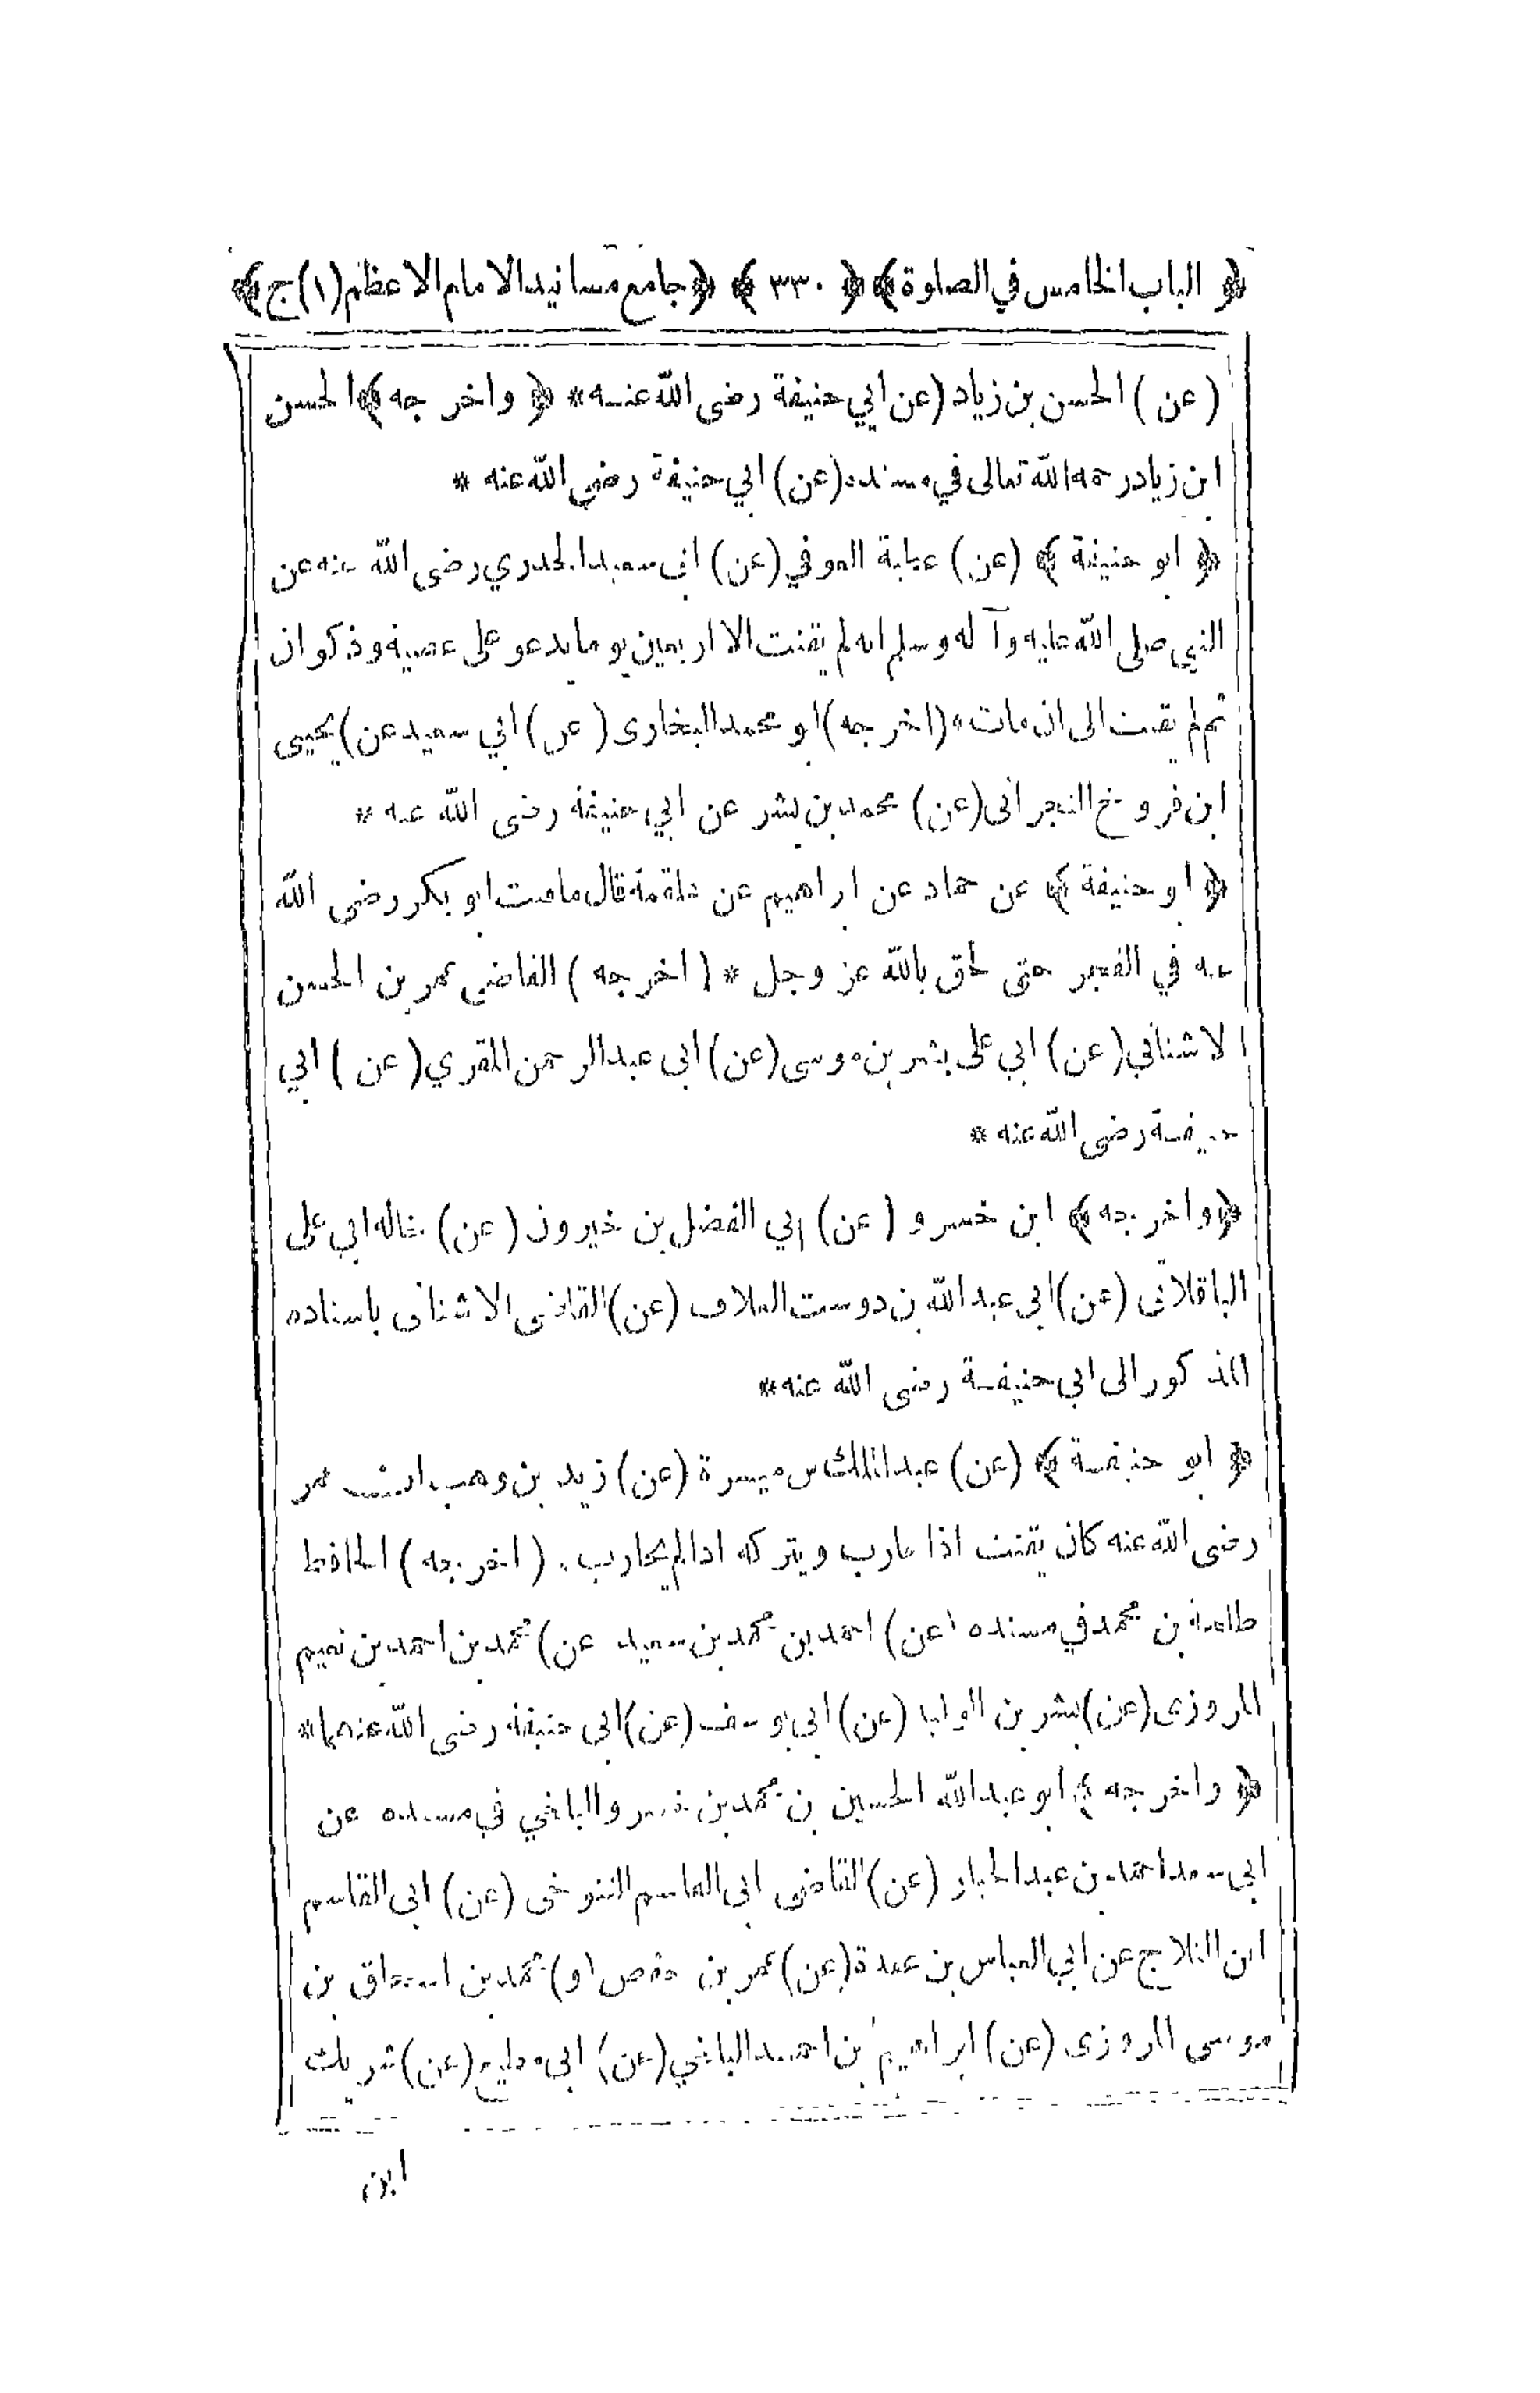 ﴿ الباب الخامس في الصلوة ﴾ ﴿ ٣٣٠ ﴾ ﴿ جامع مسانيد الامام الاعظم (١) ج ﴾
( عن ) الحسن بن زياد ( عن ابي حنيفة رضى الله عنه * ﴿ واخرجه ﴾ الحسن
ابن زياد رحمه الله تعالى في مسنده (عن) ابي حنيفة رضى الله عنه *
﴿ ابو حنيفة ﴾ (عن) عطية العوفي (عن) ابى سعيد الخدري رضى الله عنه عن
النبي صلى الله عليه وآله وسلم انه لم يقنت الا اربعين يوما يدعو على عصية وذكوان
ثم لم يقنت الى ان مات * (اخرجه) ابو محمد البخارى (عن) ابي سعيد عن) يحيى
ابن فروخ النجرانى (عن) محمد بن بشر عن ابي حنيفة رضى الله عنه *
﴿ ابو حنيفة ﴾ عن حماد عن ابراهيم عن علقمة قال ما قنت ابو بكر رضى الله
عنه في الفجر حتى لحق بالله عز وجل * ( اخرجه ) القاضى عمر بن الحسن
الاشناني (عن) ابي على بشر بن موسى (عن) ابى عبد الرحمن المقري ( عن ) ابي
حنيفة رضى الله عنه *
﴿ واخرجه ﴾ ابن خسرو ( عن ) ابي الفضل بن خيرون ( عن ) خاله ابي على
الباقلانى (عن) ابى عبد الله بن دوست العلاف (عن) القاضى الاشنانى باسناده
المذكور الى ابي حنيفة رضى الله عنه *
﴿ ابو حنيفة ﴾ (عن) عبد الملك بن ميسرة (عن) زيد بن وهب ان عمر
رضى الله عنه كان يقنت اذا حارب ويتركه اذا لم يحارب . ( اخرجه ) الحافظ
طلحة بن محمد في مسنده (عن) احمد بن محمد بن سعيد عن) محمد بن احمد بن نعيم
المروزى (عن) بشر بن الوليد (عن) ابى يوسف (عن) ابى حنيفة رضى الله عنهما *
﴿ واخرجه ﴾ ابو عبد الله الحسين بن محمد بن خسرو البلخي في مسنده عن
ابي سعد احمد بن عبد الجبار (عن) القاضى ابى القاسم التنوخى (عن) ابى القاسم
ابن الثلاج عن ابي العباس بن عقدة (عن) عمر بن حفص (و) محمد بن اسحاق بن
موسى المروزى (عن) ابراهيم بن احمد البلخي (عن) ابى مطيع (عن) شريك
ابن